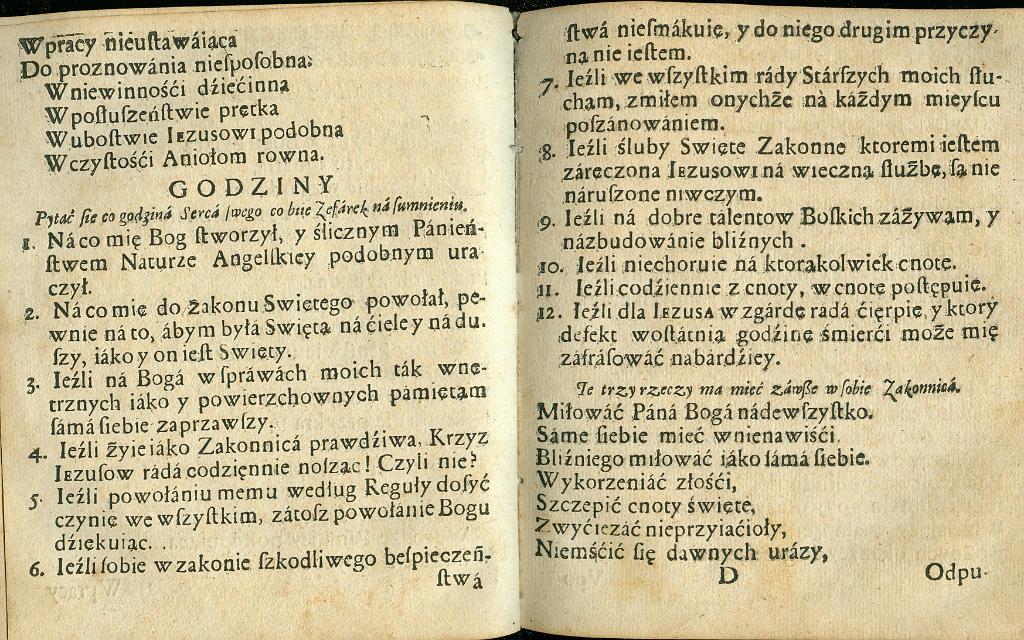 W pracy nieuſtawáiąca
Do proznowánia nieſpoſobna:
W niewinnośći dźiećinna
W poſłuſzeńſtwie prętka
W uboſtwie Iezusowi podobna
W czyſtośći Aniołom rowna.
GODZINY
Pytáć ſie co godźiná Sercá ſwego co biie Zefárek ná ſumnieniu.
1. Ná co mię Bog ſtworzył, y ślicznym Pánień-
ſtwem Naturze Angelſkiey podobnym ura
czył.
2. Ná co mię do źakonu Swiętego powołał, pe-
wnie ná to, ábym byłá Swiętą ná ćiele y ná du.
ſzy, iáko y on ieſt Swięty.
3. Ieźli ná Bogá w ſpráwách moich ták wnę-
trznych iáko y powierzchownych pámiętam
ſámá ſiebie záprzawſzy.
4. Ieźli żyię iáko Zakonnicá prawdźiwa, Krzyz
Iezuſow rádá codźiennie noſząc! Czyli nie?
5. Ieźli powołániu memu według Reguły doſyć
czynię we wſzyſtkim, zátoſz powołánie Bogu
dźiękuiąc...
6. Ieźli ſobie w zakonie ſzkodliwego beſpieczeń-
ſtwá
ſtwá nieſmákuię, y do niego drugim przyczy-
ną nie ieſtem.
7. Ieźli we wſzyſtkim rády Stárſzych moich ſłu-
cham, z miłem onychże ná káżdym mieyſcu
poſzánowániem.
8. Ieźli śluby Swięte Zakonne ktoremi ieſtem
záręczona Iezusowi ná wieczną ſłużbę, ſą nie
náruſzone niwczym.
9. Ieźli ná dobre tálentow Boſkich záżywam, y
ná zbudowánie bliźnych.
10. Ieźli nie choruię ná ktorąkolwiek cnotę.
11. Ieźli codźiennie z cnoty, w cnotę poſtępuię.
12. Ieźli dla Iezusa wzgárdę radá ćierpię, y ktory
defekt w oſtátnią godźinę śmierći może mię
záfráſowáć nabárdźiey.
Te trzy rzeczy ma mieć záwſze w ſobie Zakonnicá.
Miłowáć Páná Bogá nádewſzyſtko.
Sáme ſiebie mieć w nienawiśći.
Bliźniego miłowáć iáko ſámá ſiebie.
Wykorzeniáć złośći,
Szczepić cnoty święte,
Zwyćiężáć nieprzyiaćioły,
Niemśćić ſię dawnych urázy,
D Odpu-